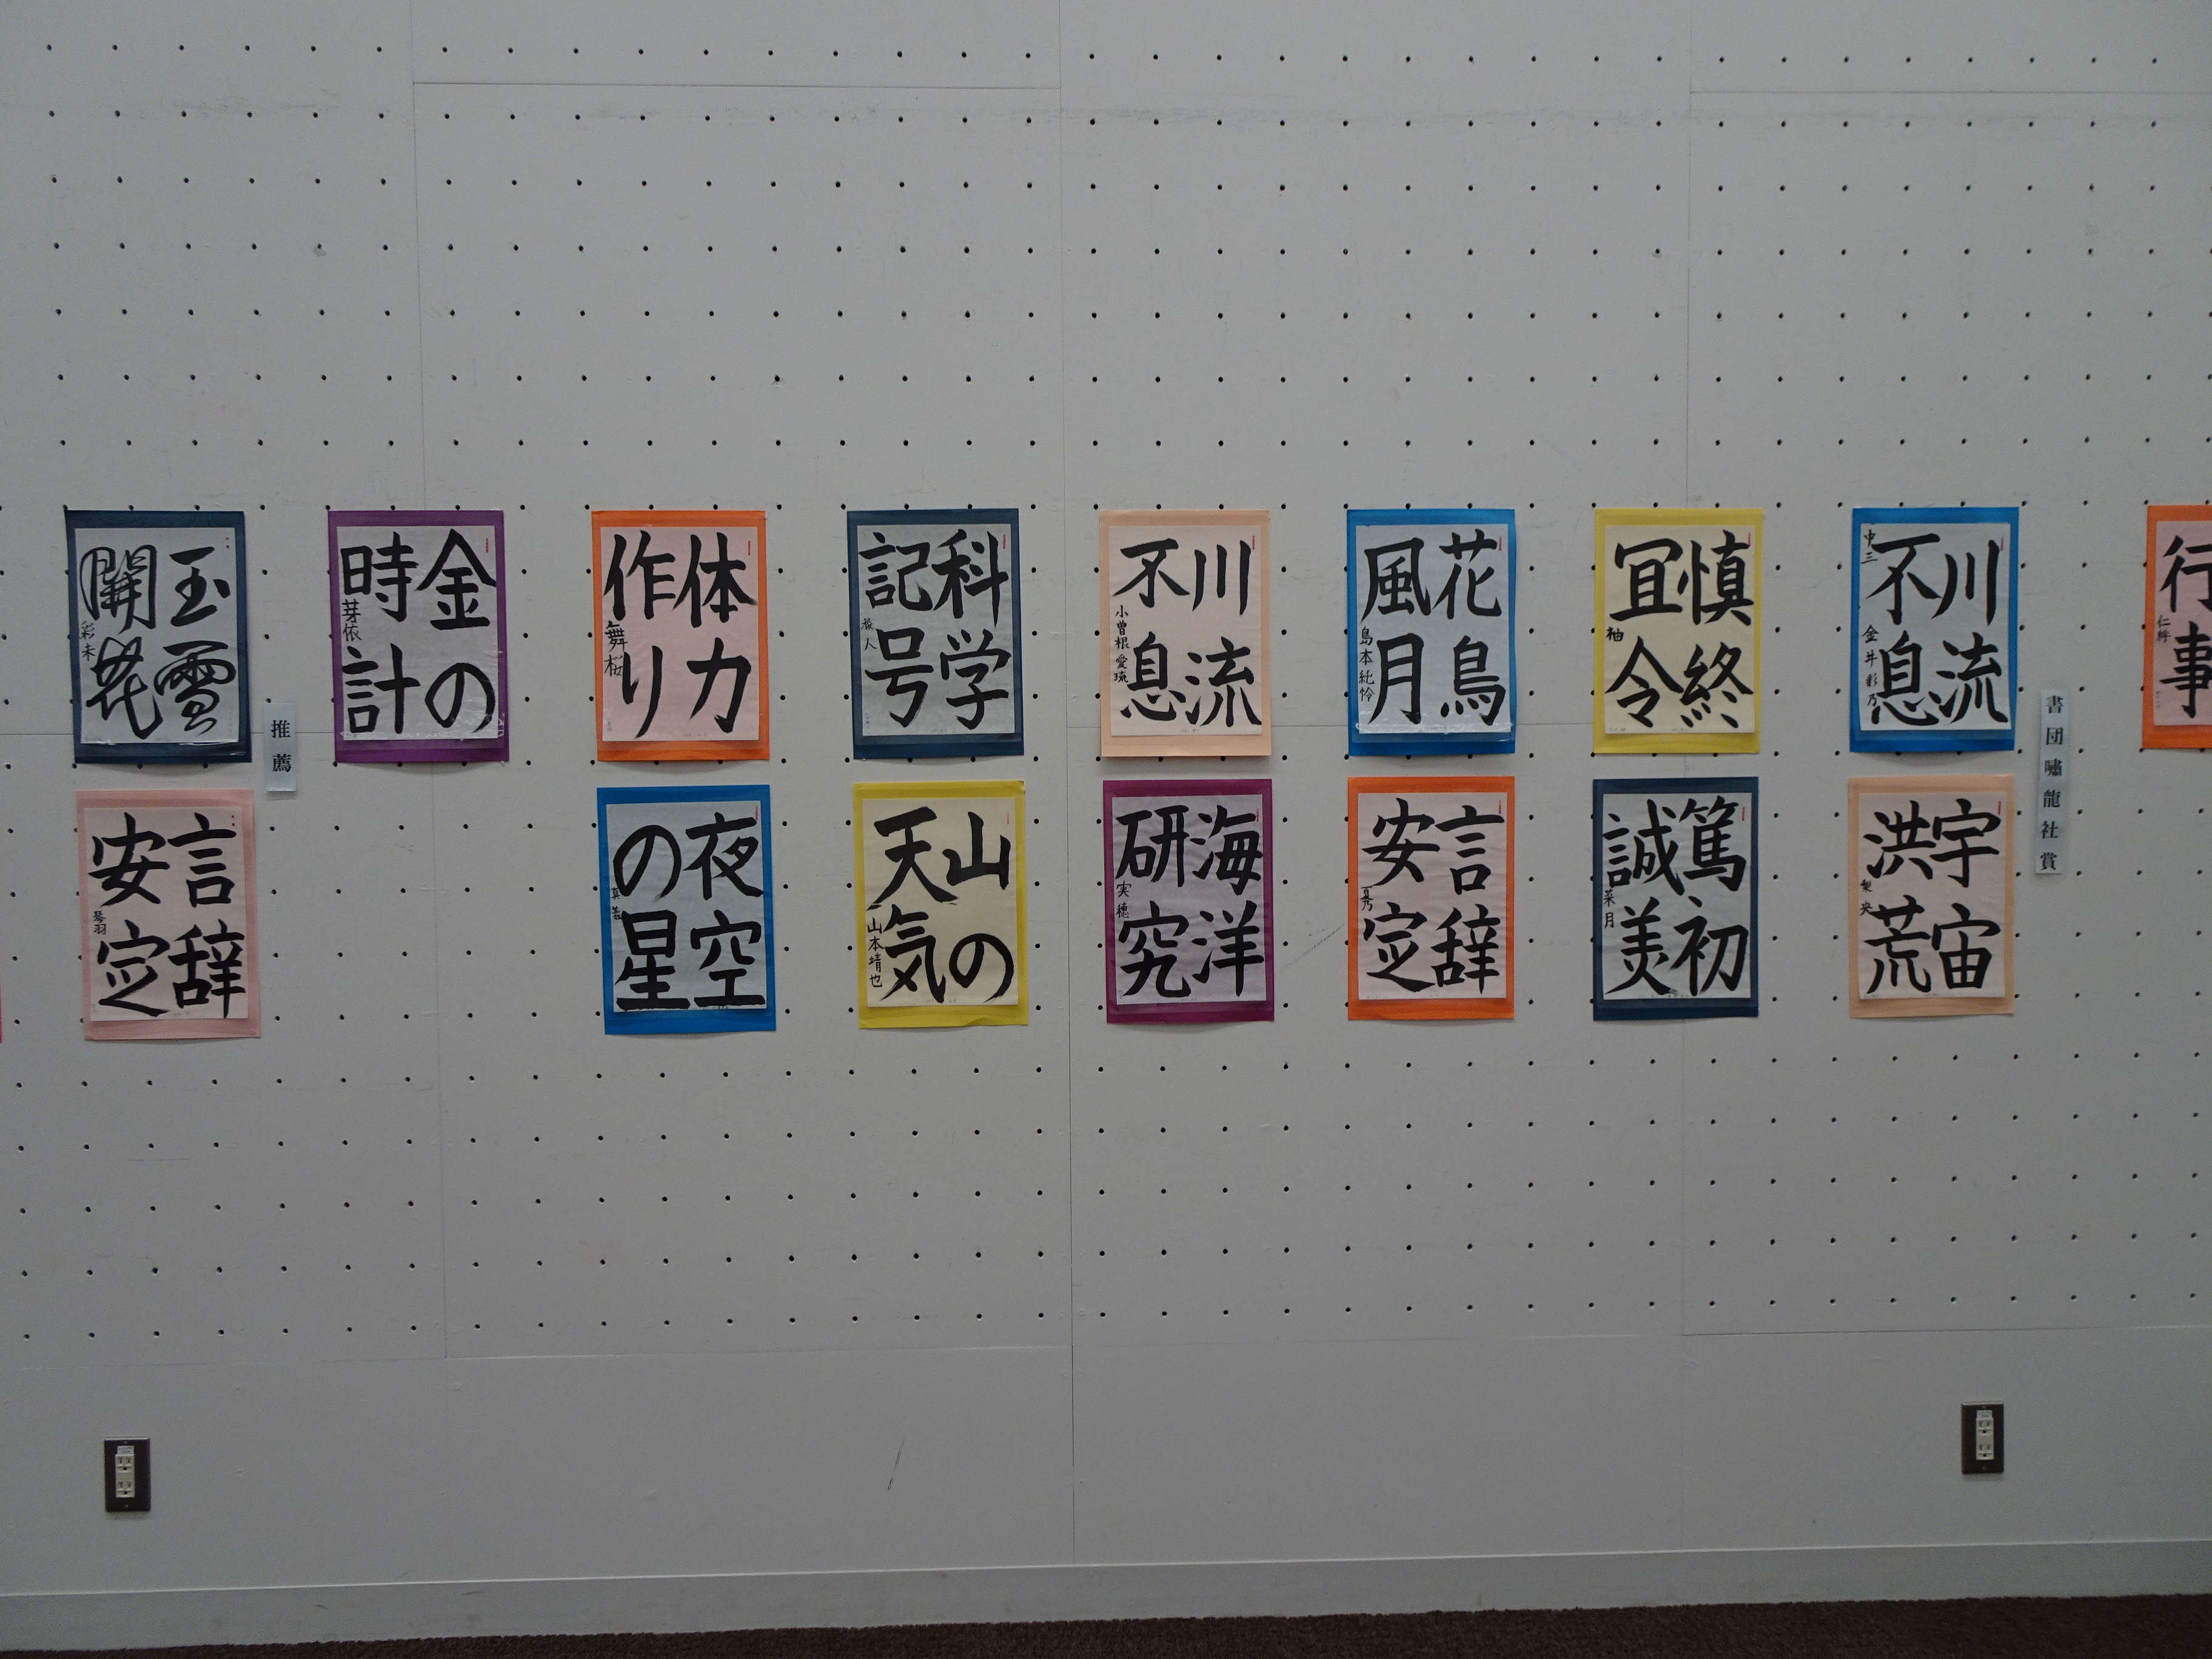 行事
書団嘯龍社賞
川流
不息
中三
金井彩乃
慎終
宜令
柚
花鳥
風月
島本紀怜
川流
不息
小曽根愛琉
科学
記号
体力
作り
舞桜
金の
時計
芽依
推薦
玉雪
開花
彩未
宇宙
洪荒
梨央
篤初
誠美
菜月
言辞
安定
夏乃
海洋
研究
実穂
山の
天気
山本晴也
夜空
の星
言辞
安定
琴羽